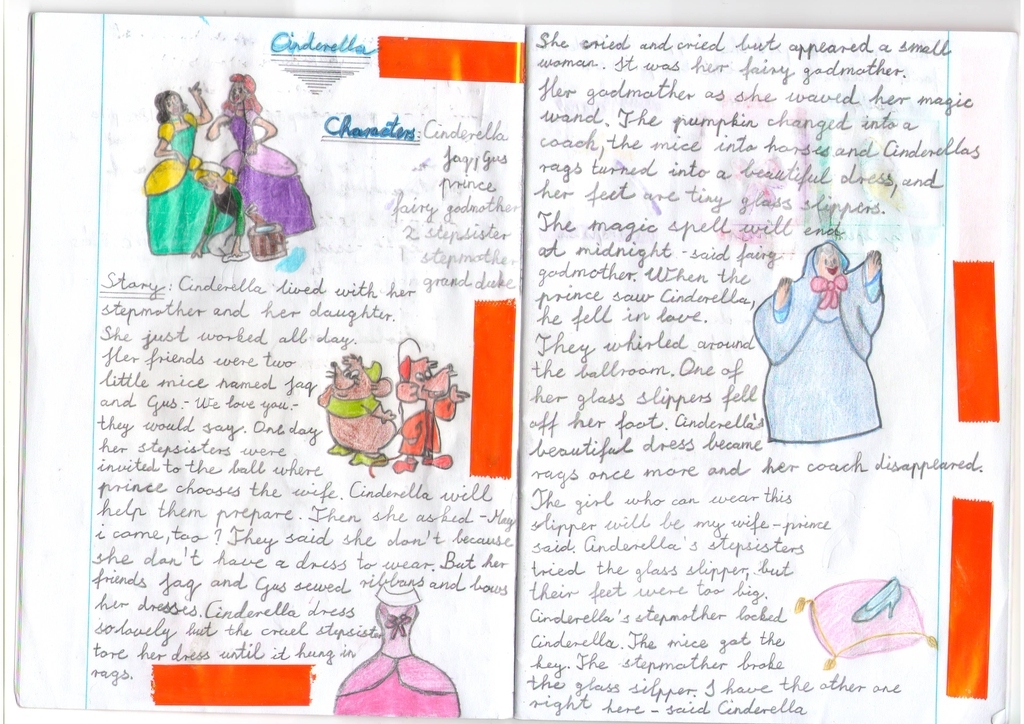 Cinderella
Characters: Cinderella
Jaq, Gus
prince
fairy godmother
2 stepsister
1 stepmother
grand duke
Story: Cinderella lived with her
stepmother and her daughter.
She just worked all day.
Her friends were two
little mice named Jaq
and Gus. - We love you. -
they would say. One day
her stepsisters were
invited to the ball where
prince chooses the wife. Cinderella will
help them prepare. Then she asked - May
i come, too? They said she don't because
she don't have a dress to wear. But her
friends Jaq and Gus sewed ribbons and bows
her dresses. Cinderella dress
so lovely but the cruel stepsister
tore her dress until it hung in
rags.
She cried and cried but appeared a small
woman. It was her fairy godmother.
Her godmother as she waved her magic
wand. The pumpkin changed into a
coach, the mice into horses and Cinderellas
rags turned into a beautiful dress, and
her feet are tiny glass slippers.
The magic spell will end
at midnight - said fairy
godmother. When the
prince saw Cinderella,
he fell in love.
They whirled around
the ballroom. One of
her glass slippers fell
off her foot. Cinderella's
beautiful dress became
rags once more and her coach disappeared.
The girl who can wear this
slipper will be my wife - prince
said. Cinderella's stepsisters
tried the glass slipper, but
their feet were too big.
Cinderella's stepmother locked
Cinderella. The mice got the
key. The stepmother broke
the glass silpper. I have the other one
right here - said Cinderella